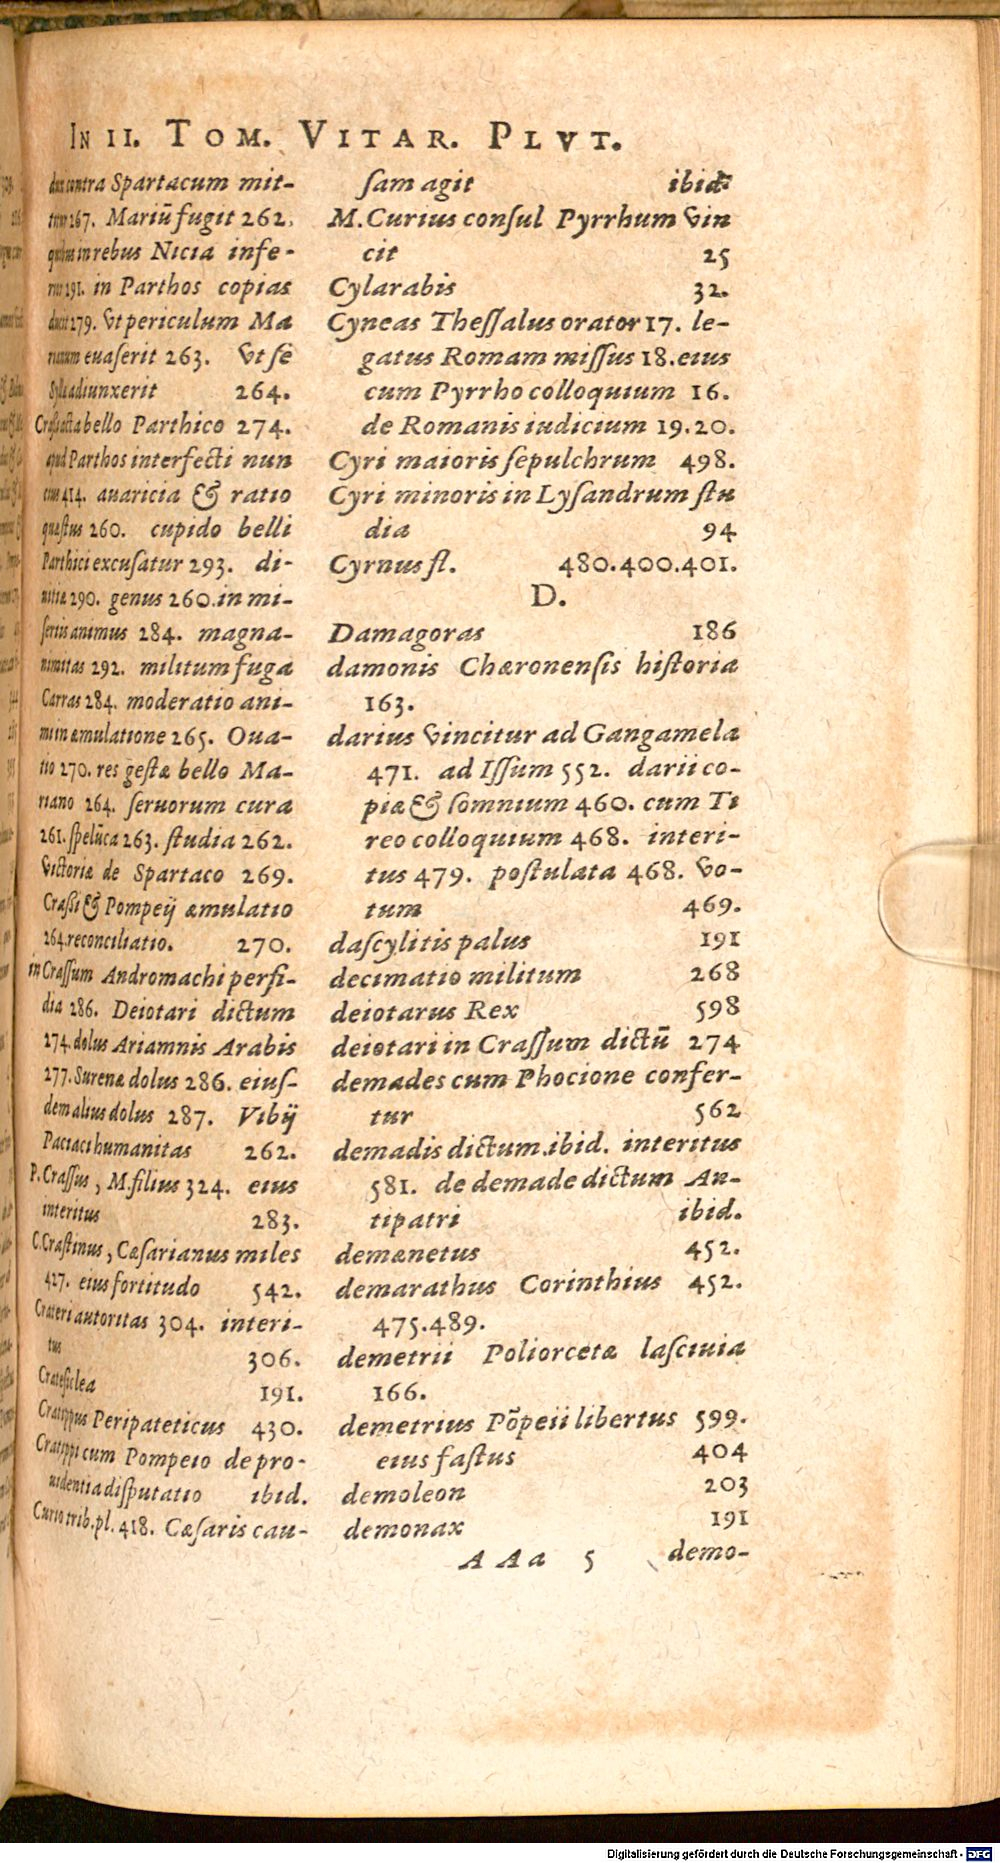 IN II. TOM. VITAR. PLVT.
dux contra Spartacum mit-
titur 267. Mariũ fugit 262.
quibus in rebus NICIA infe-
rior 291. in Parthos copias
ducit 279. vt periculum Ma
rianum euaserit 263. Vt se
Syllæ adiunxerit 264.
Crassi acta bello Parthico 274.
apud Parthos interfecti nun
cius 414. auaricia & ratio
quæstus 260. cupido belli
Parthici excusatur 293. di-
uitiæ 290. genus 260. in mi-
seriis animus 284. magna-
nimitas 292. militum fuga
Carras 284. moderatio ani-
mi in æmulatione 265. Oua-
tio 270. res gestæ bello Ma-
riano 264. seruorum cura
261. spelũca 263. studia 262.
Victoria de Spartaco 269.
Crassi & Pompeij æmulatio
264. reconciliatio. 270.
in Crassum Andromachi perfi-
dia 286. Deiotari dictum
274. dolus Ariamnis Arabis
277. Surenæ dolus 286. eius-
dem alius dolus 287. Vibij
Paciaci humanitas 262.
P. Crassus, M. filius 324. eius
interitus 283.
C. Crastinus, Cæsarianus miles
427. eius fortitudo 542.
Crateri autoritas 304. interi-
tus 306.
Cratesiclea 191.
Cratippus Peripateticus 430.
Cratippi cum Pompeio de pro-
uidentia disputatio ibid.
Curio trib. pl. 418. Cæsaris cau-
sam agit ibid.
M. Curius consul Pyrrhum vin
cit 25
Cylarabis 32.
Cyneas Thessalus orator 17. le-
gatus Romam missus 18. eius
cum Pyrrho colloquium 16.
de Romanis iudicium 19.20.
Cyri maioris sepulchrum 498.
Cyri minoris in Lysandrum stu
dia 94
Cyrnus fl. 480.400.401.
D.
Damagoras 186
damonis Chæronensis historia
163.
darius vincitur ad Gangamela
471. ad Issum 552. darii co-
piæ & somnium 460. cum Ti
reo colloquium 468. interi-
tus 479. postulata 468. vo-
tum 469.
dascylitis palus 191
decimatio militum 268
deiotarus Rex 598
deiotari in Crassum dictũ 274
demades cum Phocione confer-
tur 562
demadis dictum. ibid. interitus
581. de demade dictum An-
tipatri ibid.
demænetus 452.
demarathus Corinthius 452.
475.489.
demetrii Poliorcetæ lasciuia
166.
demetrius Põpeii libertus 599.
eius fastus 404
demoleon 203
demonax 191
A A a 5 demo-
Digitalisierung gefördert durch die Deutsche Forschungsgemeinschaft - DFG